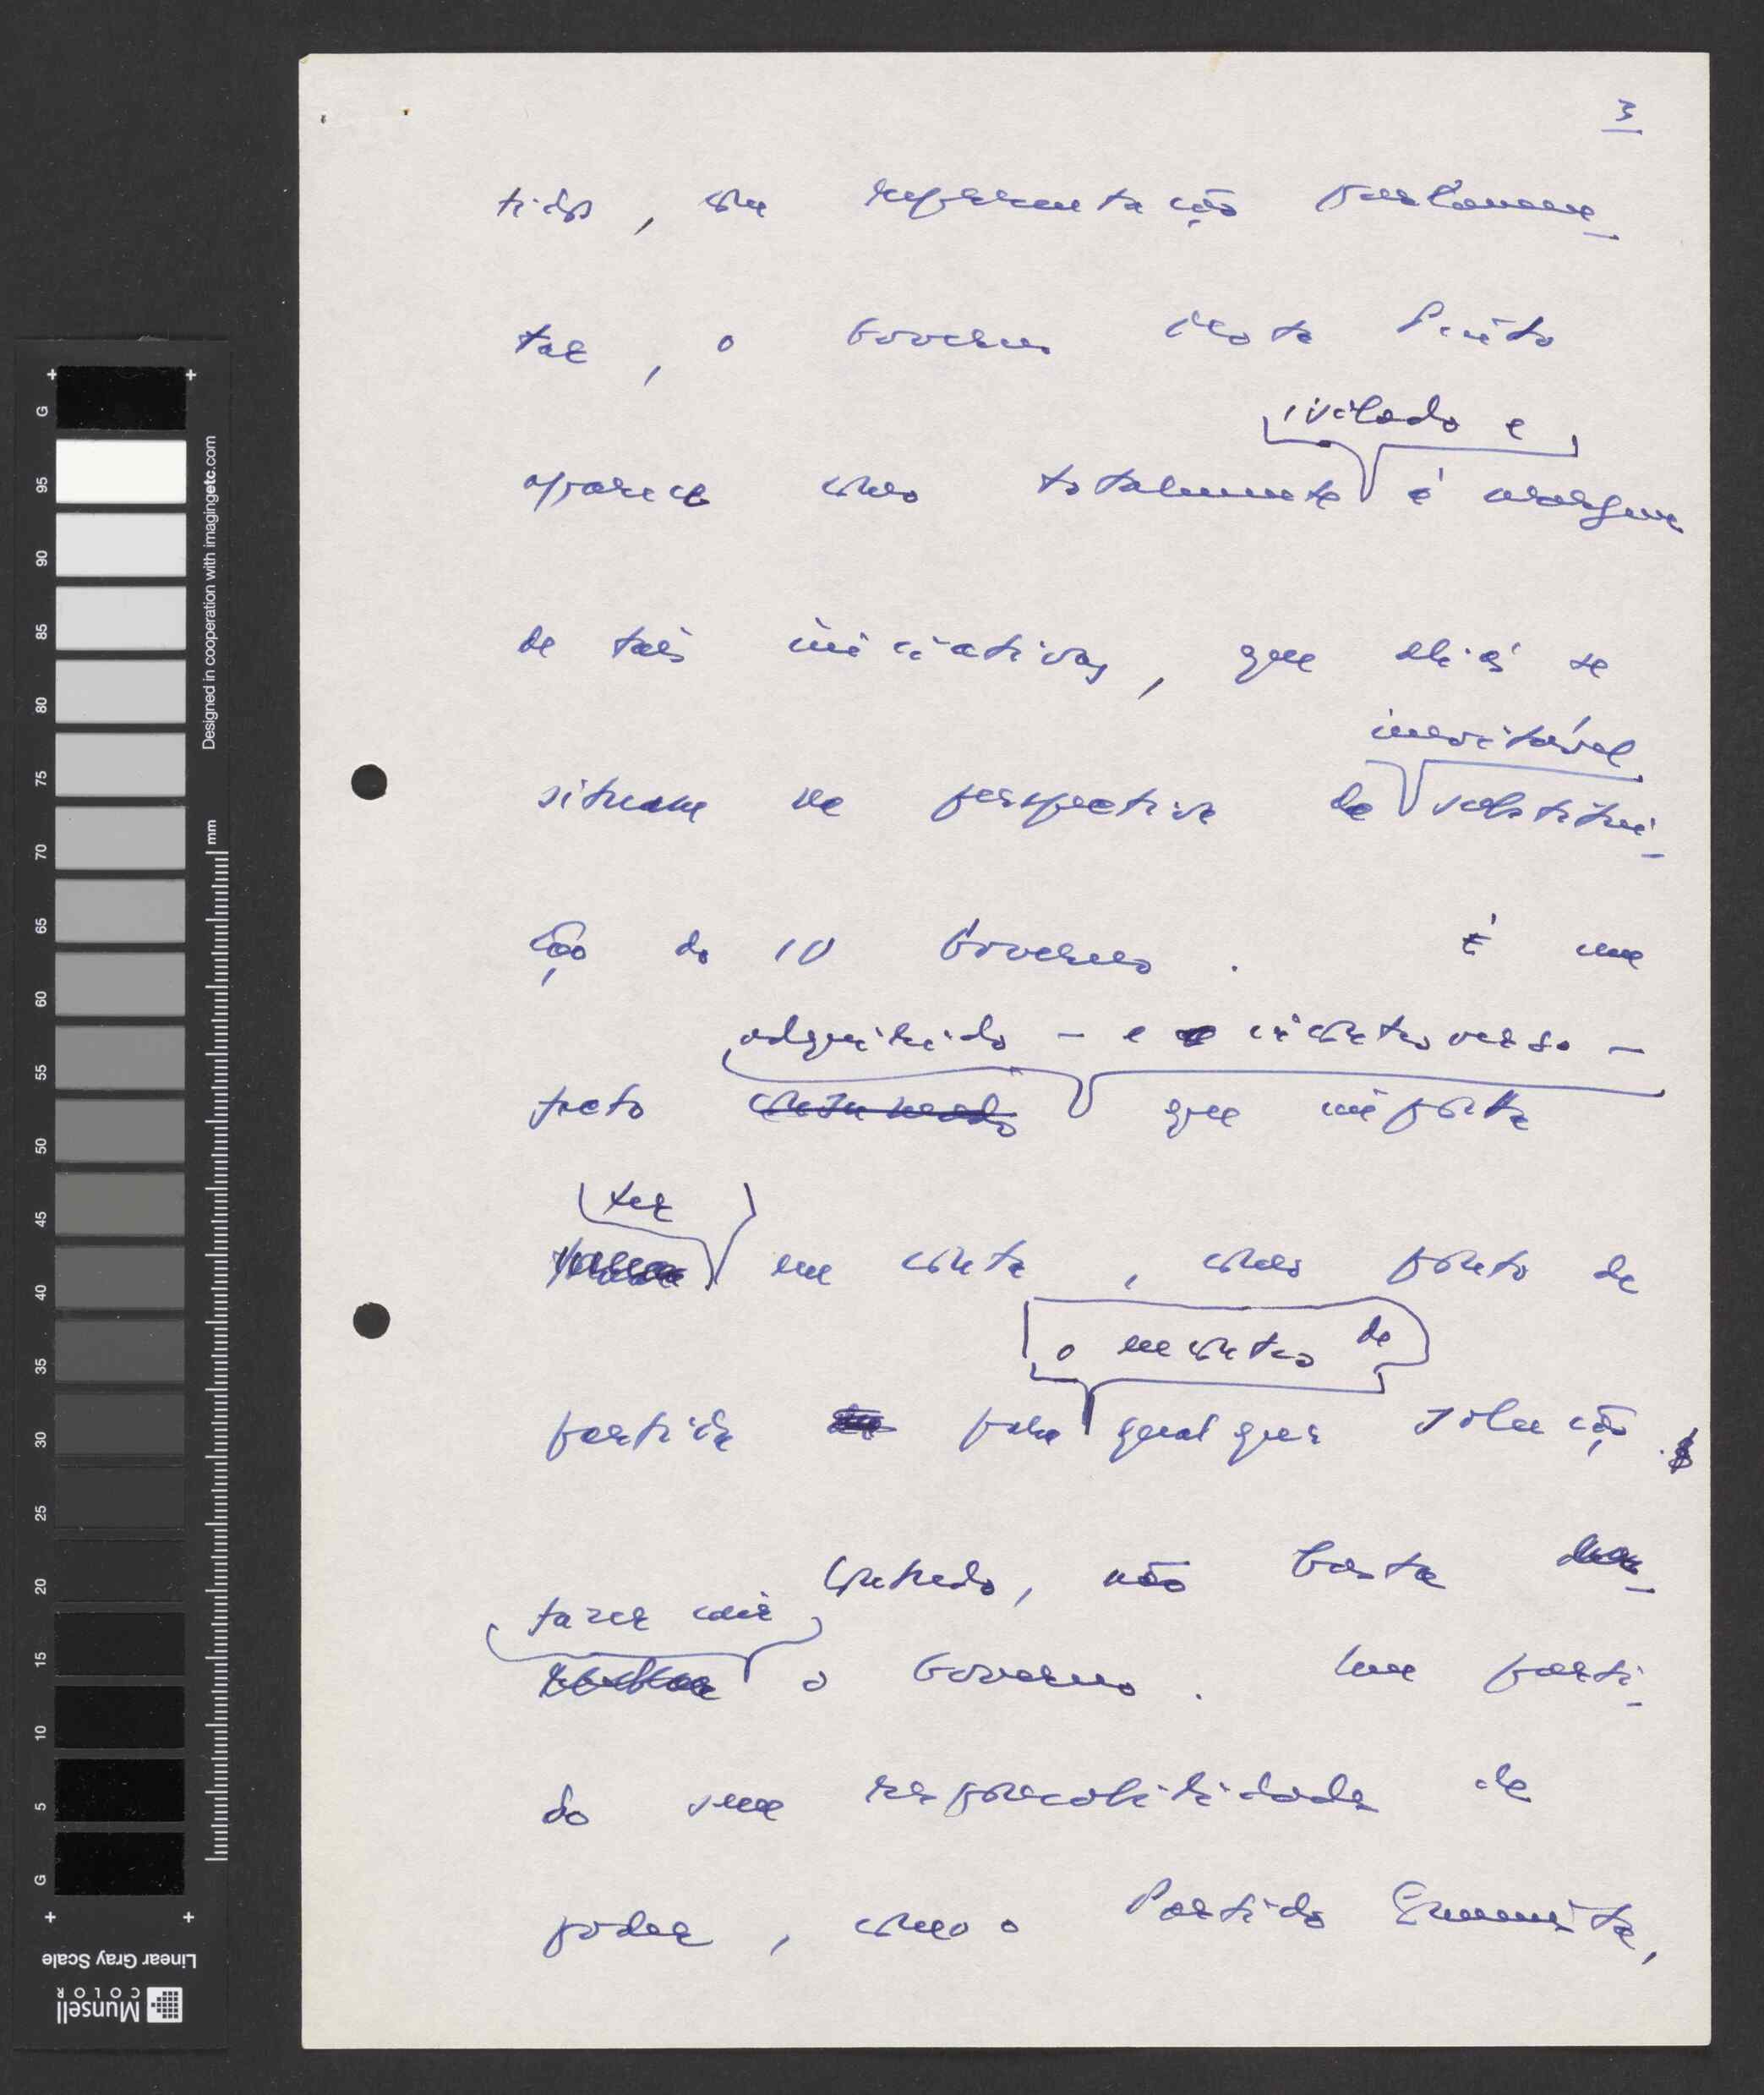 3
tidos, com representação parlamen-
tar, o Governo Mota Pinto
isolado e
aparece como totalmente à margem
de tais iniciativas, que aliás se
situam na perspectiva da substitui-
inevitável
ção do IV Governo. É um
adquirido - e incontroverso -
facto que importa
ter
em conta, como ponto de
o encontro de
partida para qualquer solução.
Contudo, não basta
fazer cair
o Governo. Um parti-
do sem responsabilidade de
poder, como o Partido Comunista,
Designed in cooperation with imagingetc.com
mm
G 95 90 85 80 75 70 65 60 55 50 45 40 35 30 25 20 15 10 5 G
Linear Gray Scale
Munsell
COLOR